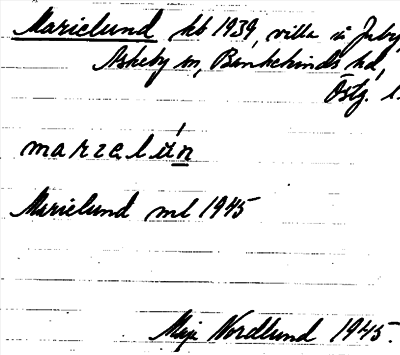 Marielund hb 1939, villa i Juby
Askeby sn, Bankekinds hd,
Östg. l.
marielún
Marielund ml 1945
Maja Nordlund 1945.